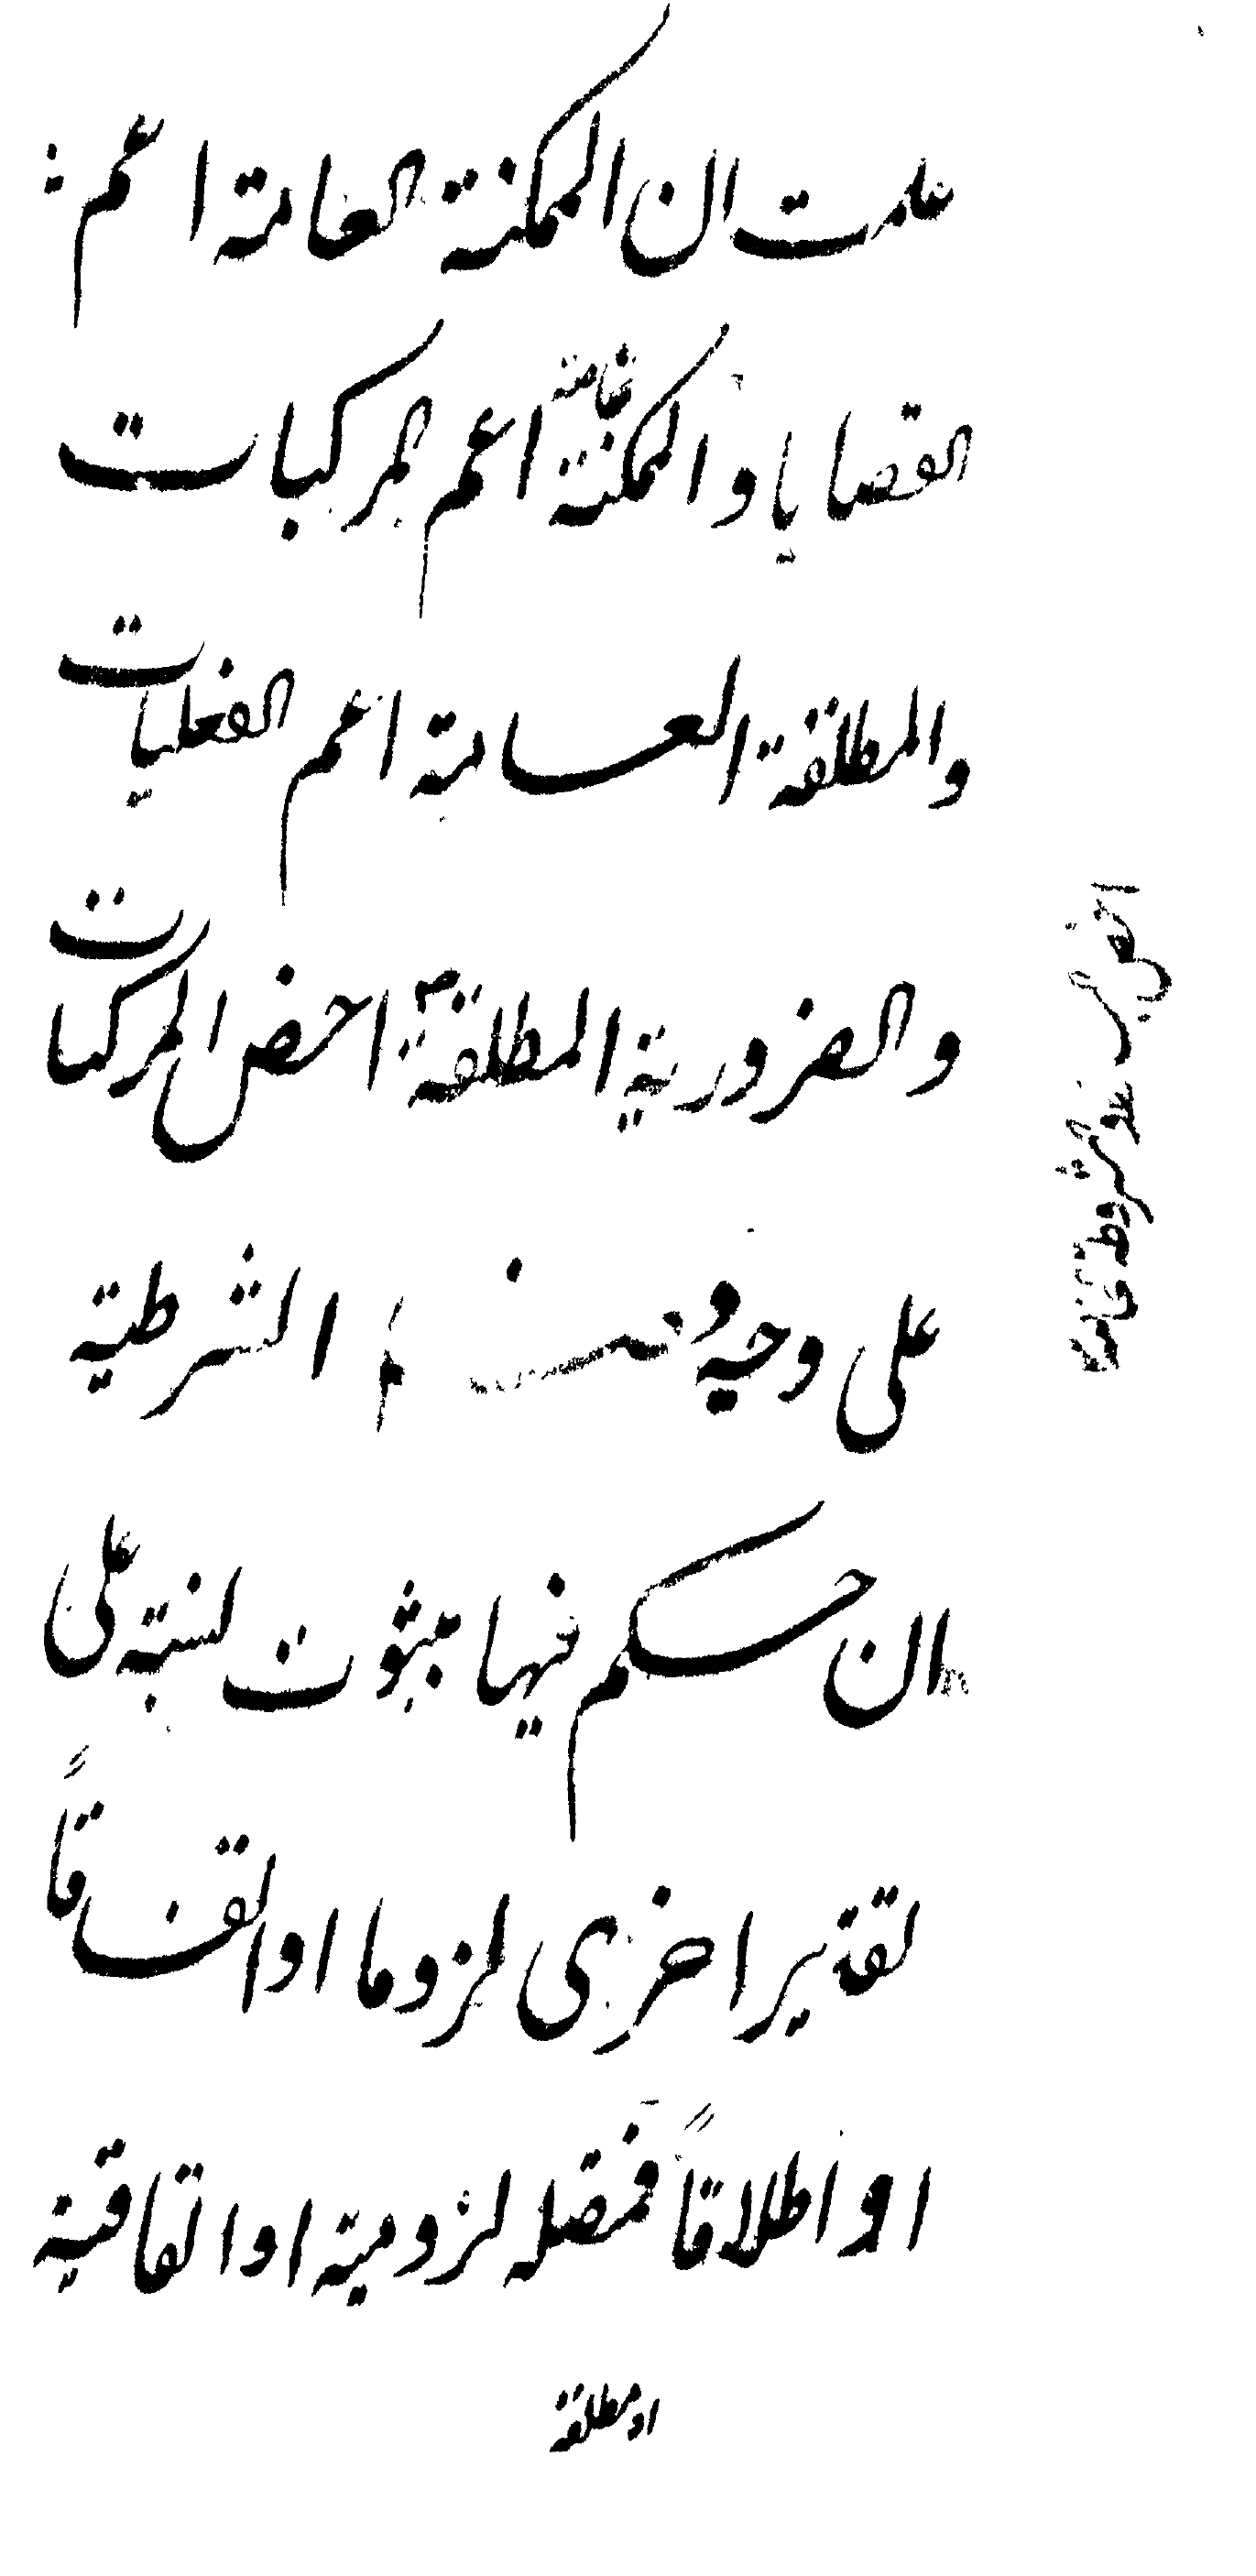 علمت ان الممكنة العامة اعم
القضايا والممكنة الخاصة اعم المركبات
والمطلقة العامة اعم الفعليات
والضرورية المطلقة اخص المركبات
على وجه فصل الشرطية
ان حكم فيها بثبوت نسبة على
تقدير اخرى لزوما او اتفاقاً
او اطلاقاً فمتصلة لزومية او اتفاقية
او مطلقة